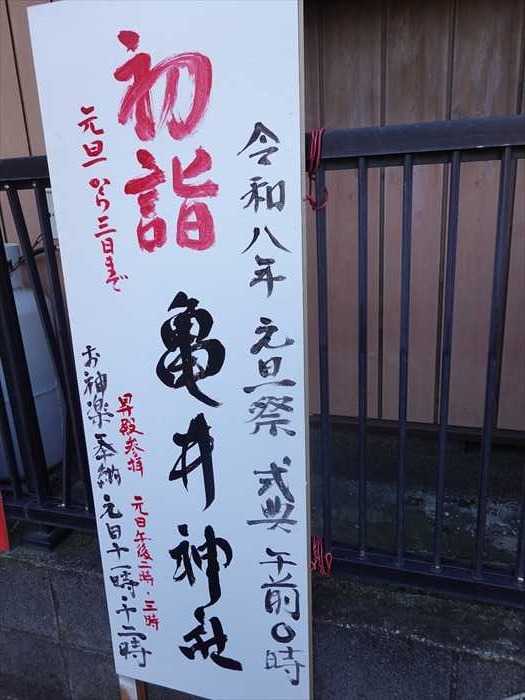 令和八年 元旦祭 式典 午前0時
初詣 亀井神社
元旦から三日まで
昇殿参拝 元日午後二時・三時
お神楽奉納 元日十一時・十二時